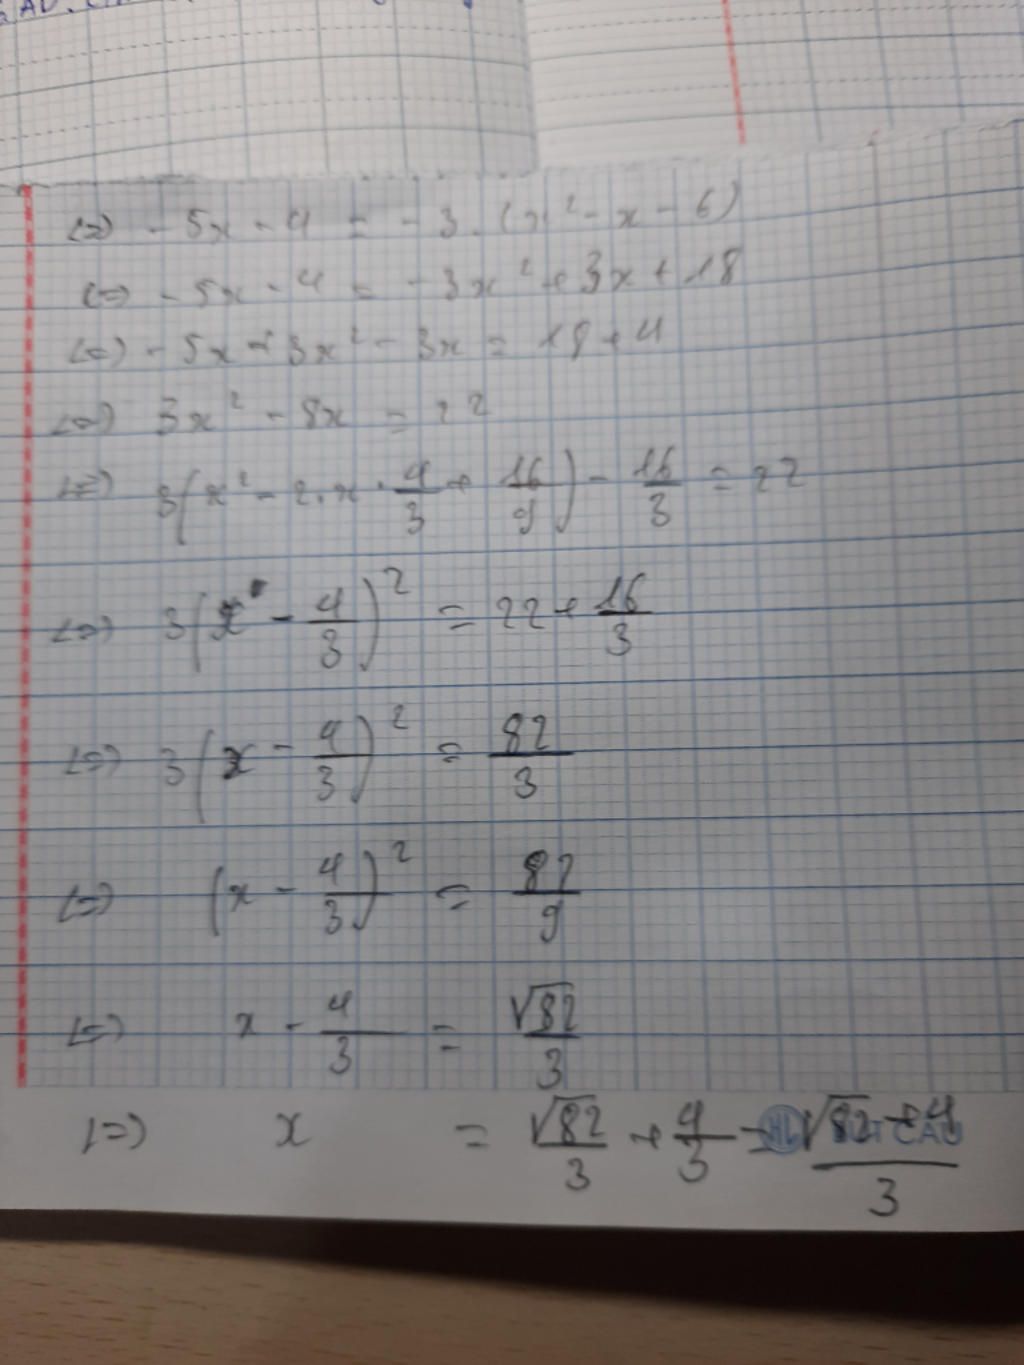 <=> - 5x - 4 = - 3 . (x² - x - 6)
<=> - 5x - 4 = - 3x² + 3x + 18
<=> - 5x + 3x² - 3x = 18 + 4
<=> 3x² - 8x = 22
<=> 3(x² - 2.x.4/3 + 16/9) - 16/3 = 22
<=> 3(x - 4/3)² = 22 + 16/3
<=> 3(x - 4/3)² = 82/3
<=> (x - 4/3)² = 82/9
<=> x - 4/3 = √82/3
<=> x = √82/3 + 4/3 = (√82 + 4)/3